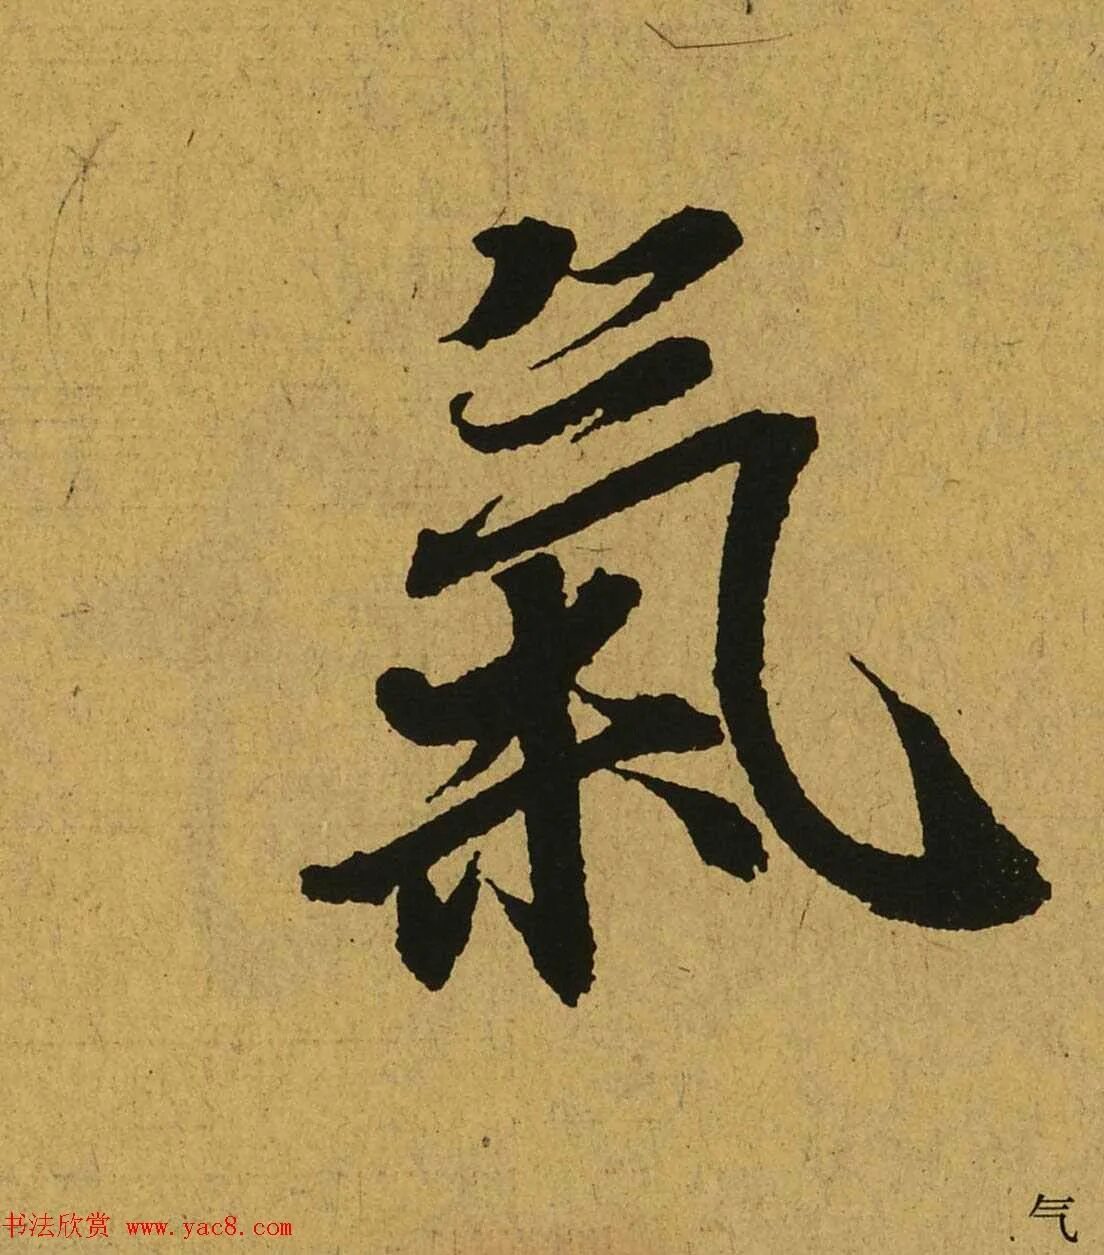 氣
气
书法欣赏 www.yac8.com